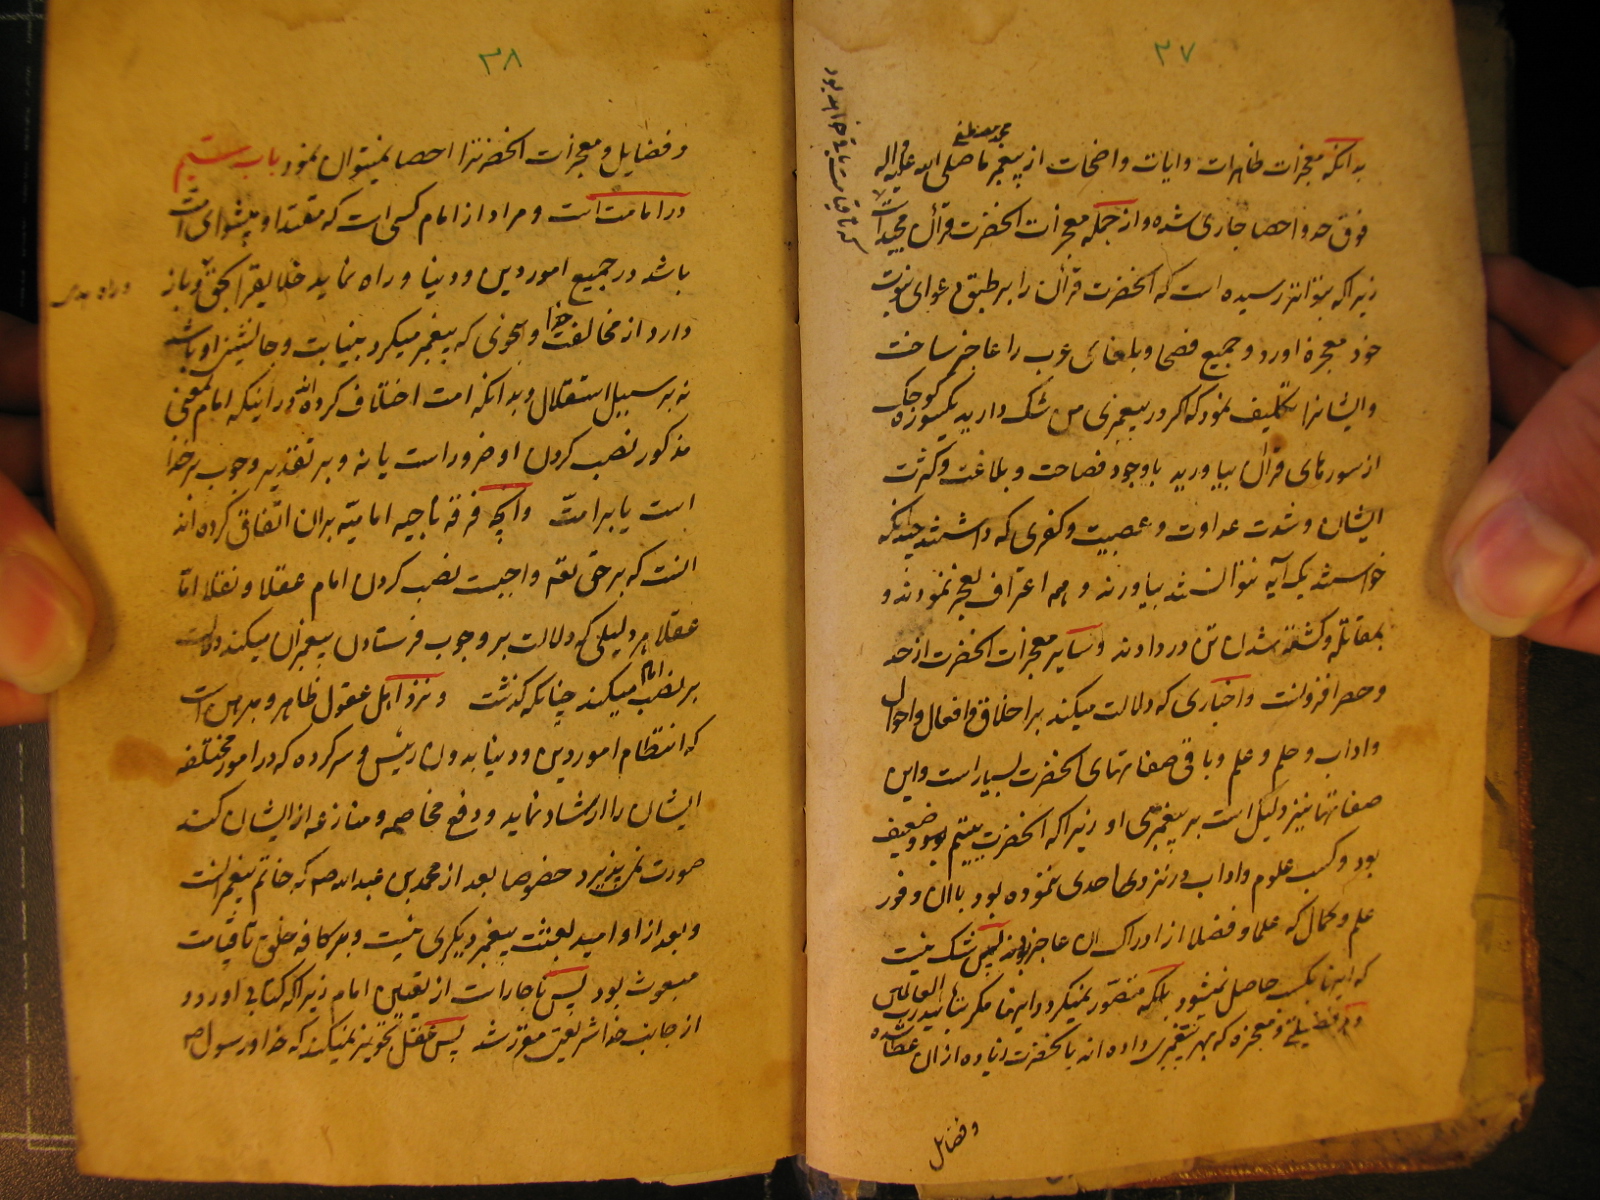 ۳۷
محمد مصطفی
بدانکه معجزات ظاهرات و ایات واضحات از پیغمبر ما صلی الله علیه و اله
فوق حد و احصا جاری شده و از جمله معجزات انحضرت قرآن مجید است
زیرا که بتواتر رسیده است که انحضرت قرآن را بر طبق دعوای نبوت
خود معجزه اورد و جمیع فصحا و بلغای عرب را عاجز ساخت
و ایشانرا تکلیف نمود که اگر در پیغمبری من شک دارید یکسوره کوچک
از سورهای قرآن بیاورید باوجود فصاحت و بلاغت و کثرت
ایشان و شدت عداوت و عصبیت و کفری که داشتند چندانکه
خواستند یک آیه نتوانستند بیاورند و همه اعتراف بعجز نمودند و
بمقاتله و کشته شدن تن در دادند و سایر معجزات انحضرت از حد
و حصر افزونست و اخباری که دلالت میکند بر اخلاق و افعال و احوال
و اداب و حلم و علم و باقی صفاتهای انحضرت بسیار است و این
صفاتها نیز دلیل است بر پیغمبری او زیرا که انحضرت یتیم بود و ضعیف
بود و کسب علوم و اداب در نزد احدی ننموده بود با ان وفور
علم و کمال که علما و فضلا از ادراک ان عاجز بودند پس شک نیست
که اینها بکسب حاصل نمیشود بلکه متصور نمیگردد اینها مگر بتایید رب العالمین
و هر فضیلتی و معجزه که بهر پیغمبری داده اند بانحضرت زیاده از ان عطا شده
و فضایل
که تا قیامت باقی خواهد بود
۳۸
و فضایل و معجزات انحضرترا احصا نمیتوان نمود باب سیم
در امامت است و مراد از امام کسی است که مقتدا و پیشوای امت
باشد در جمیع امور دین و دنیا و راه نماید خلایقرا بحق و باز
دارد از مخالفت خدا و بنحوی که پیغمبر میکرد بنیابت و جانشینی او باشد
نه بر سبیل استقلال و بدانکه امت اختلاف کرده اند در اینکه امام بمعنی
مذکور نصب کردن او ضرور است یا نه و بر تقدیر وجوب بر خدا
است یا بر امت و آنچه فرقه ناجیه امامیه بران اتفاق کرده اند
انست که بر حق تعم واجبست نصب کردن امام عقلا و نقلا اما
عقلا هر دلیلی که دلالت بر وجوب فرستادن پیغمبران میکند دلالت
بر نصب امام میکند چنانکه گذشت و نزد اهل عقول ظاهر و مبرهن است
که انتظام امور دین و دنیا بدون رئیس و سرکرده که در امور مختلفه
ایشان را ارشاد نماید و دفع مخاصمه و منازعه از ایشان کند
صورت نمی پذیرد خصوصا بعد از محمد بن عبدالله ص که خاتم پیغمبرانست
و بعد از او امید بعثت پیغمبر دیگری نیست و بر کافه خلق تا قیامت
مبعوث بود پس ناچار است از تعیین امام زیرا که کتابی اورد و
از جانب خدا شریعتی مقرر شد پس عقل تجویز نمیکند که خدا و رسول ص